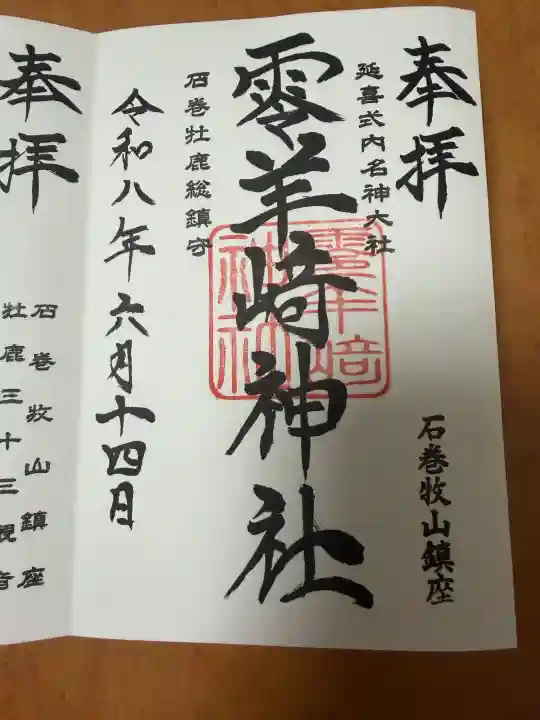 奉拝
延喜式内名神大社
石巻牧山鎮座
零羊崎神社
零羊崎神社
石巻牡鹿総鎮守
令和八年六月十四日
奉拝
石巻牧山鎮座
牡鹿三十三観音